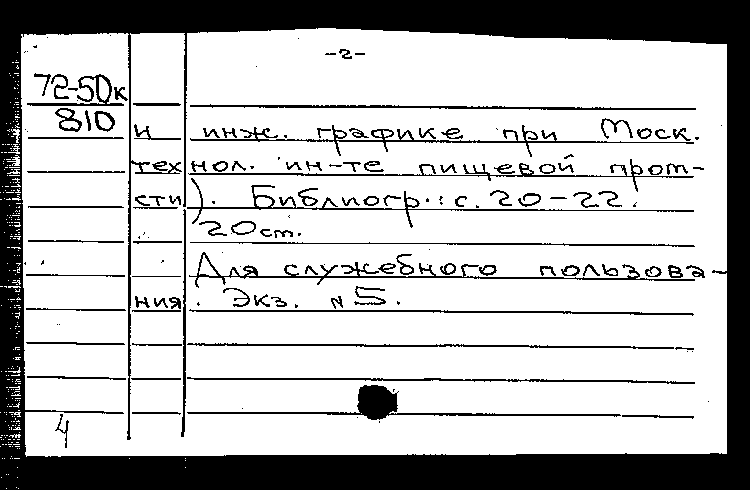 -2-
72-50к
810 и инж. графике при Моск.
технол. ин-те пищевой пром-
сти). Библиогр.: с. 20-22.
20 cm.
Для служебного пользова-
ния. Экз. N 5.
4